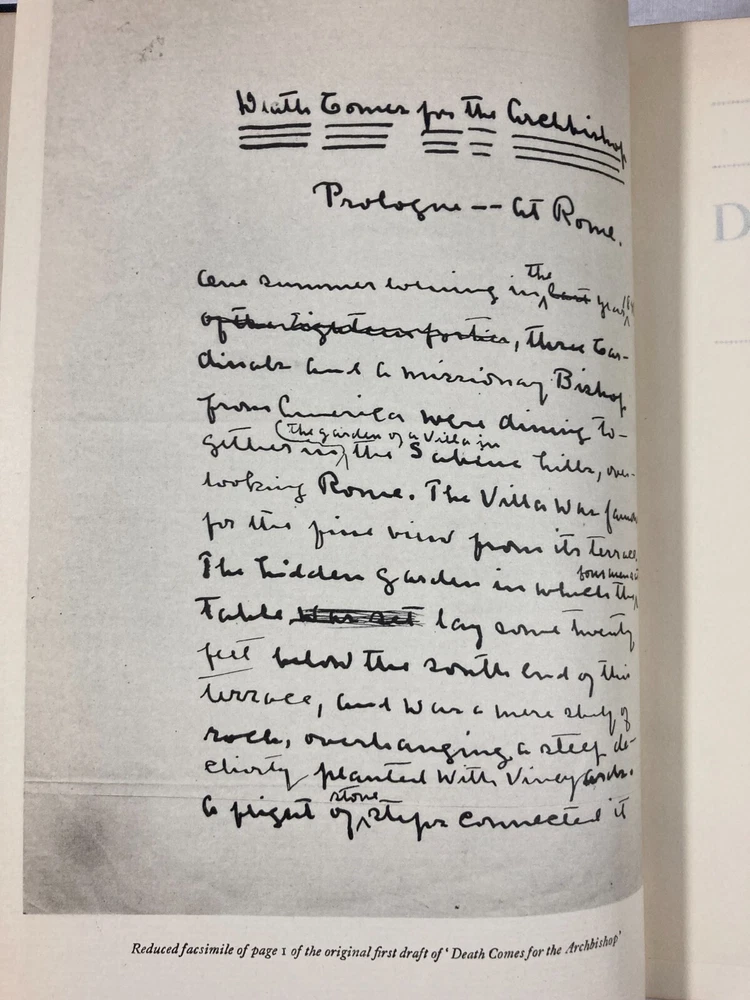 Death Comes for the Archbishop
Prologue -- At Rome.
One summer evening in the last year, 184
of the eighteen forties, three Car-
dinals and a missionary Bishop
from America were dining to-
(the garden of a Villa in
gether in the Sabine hills, over-
looking Rome. The Villa was famous
for the fine view from its terrace.
four men
The hidden garden in which the
table was set lay some twenty
feet below the south end of this
terrace, and was a mere shelf of
rock, overhanging a steep de-
clivity planted with vineyards.
stone
A flight of steps connected it
Reduced facsimile of page 1 of the original first draft of ‘Death Comes for the Archbishop’
D